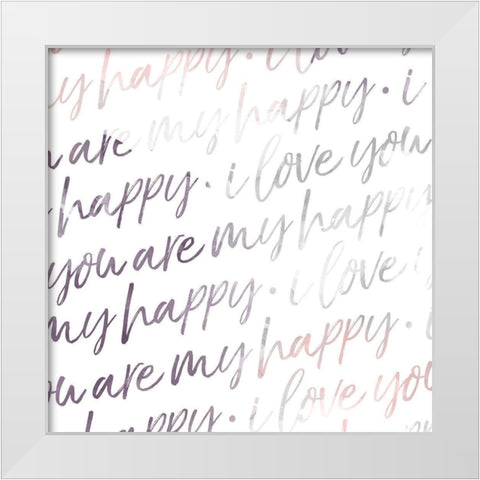 y happy · i love
u are my happy · i
happy · i love you
you are my happy
my happy · i love y
ou are my happy · i
happy · i love you